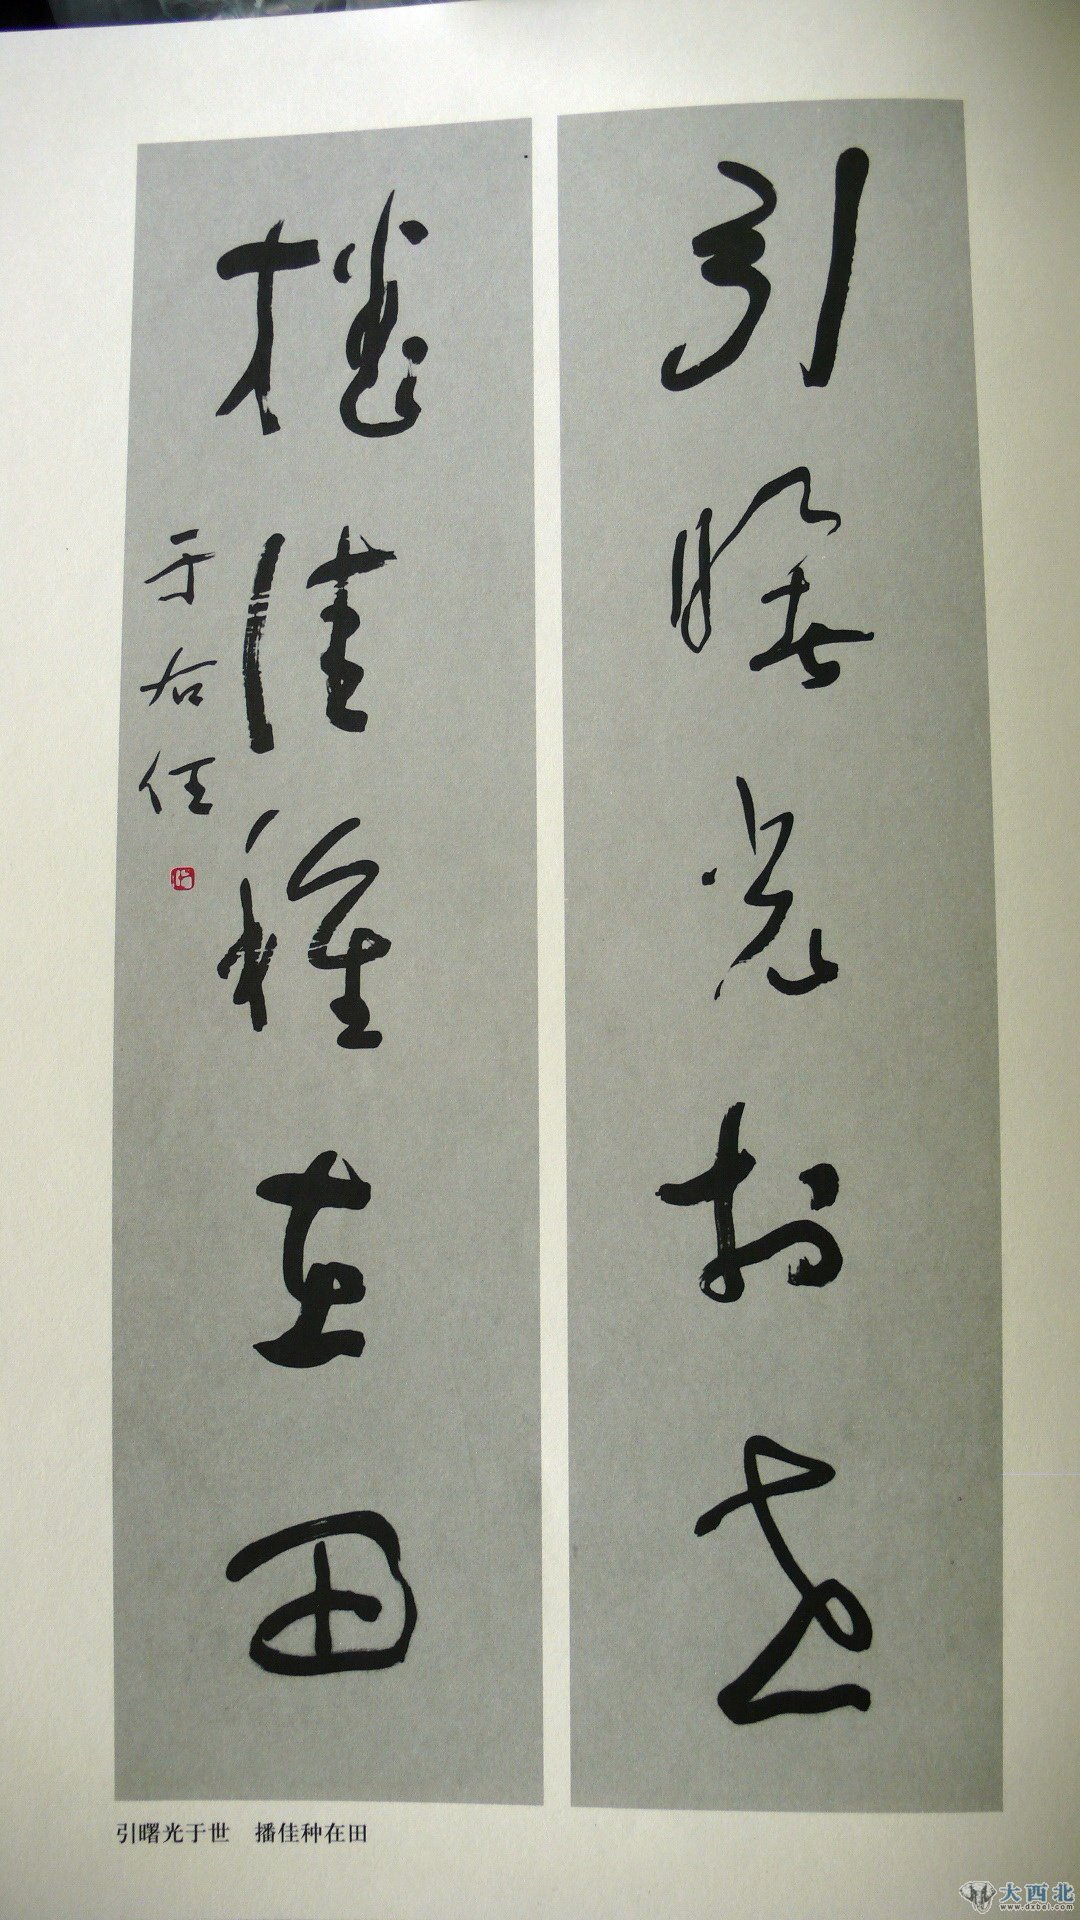 引曙光於世
播佳種在田
于右任
引曙光于世　播佳种在田
大西北
www.dxbei.com